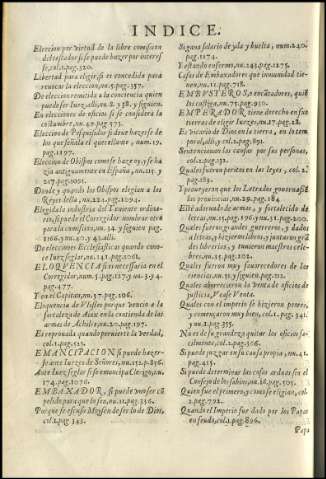 INDICE.
Eleccion por virtud de la libre comission
del estado si se puede hazer por interes
se, col.2.pag.520.
Libertad para eligir, si es concedida para
renocar la eleccion, nu.5.pag.257.
De eleccion remetida a la conciencia quien
puede ser luez, allí, n. 2. 38. y siguien.
En elecciones de oficios si se considera la
costumbre, nu.49.pag.273.
Eleccion de Pesquisidor si deue hazerse de
los que señala el querellante, num.19.
pag.1197.
Eleccion de Obispos como se haze oy, y se ha
zia antiguamente en España, nu.115. y
217.pag.1091.
Donde y quando los Obispos elegian a los
Reyes della, nu.221.pag.1094.
Elegida la industria del Teniente ordina-
rio, si puede el Corregidor nombrar otro
para la comission, nu.34. y siguien pag.
1166.pag.nu.43.allí.
De elecciones Ecclesiasticas quando cono-
ce luez seglar, nu.141.pag.1061.
ELOQVENCIA si es necessaria en el
Corregidor, num.5.pag.127.y nu.3.y 4.
pag.477.
Y en el Capitan, nu.37.pag.106.
Eloquencia de Vlisses por que vencio a la
fortaleza de Aiax en la contienda de las
armas de Achiles, nu.20.pag.197.
Es reprouada quando peruierte la verdad,
col.1.pag.513.
EMANCIPACION si puede hazer-
se ante Iuezes de Señores, nu.152.p.896.
Ante Iuez seglar si se emancipa Clerigo, nu.
174.pag.1076.
EMBAXADOR, si puede vno ser cõ
pelido para que lo sea, nu.11.pag.356.
Porque se escuso Moysen de ser lo de Dios,
col.2.pag.343.
Si gana salario de yda y buelta, num.240.
pag.1174.
Y estando enfermo, nu.243.pag.1275.
Casos de Embaxadores que inmunidad tie-
nen, nu.11.pag.718.
EMBVSTEROS, o encantadores, quiẽ
los castiga, nu.75.pag.950.
EMPERADOR tiene derecho en sus
tierras de eligir Iuezes, nu.17.pag.18.
Es Vicario de Dios en la tierra, en lo tem
poral, allí, y col.2.pag.891.
Sentenciauan las causas por sus personas,
col.2.pag.131.
Quales fueron peritos en las leyes, col. 2.
pag.182.
Y procurauan que los Letrados gouernassẽ
las prouincias, nu.29.pag.184.
Està adornado de armas, y fortalecido de
letras, nu.15.pag.196.y nu.31.pag.200.
Quales fueron grandes guerreros, y dados
a letras, y hizieron libros, y juntaron gran
des librerias, y tuuieron maestros cele-
bres, nu.25.pag.102.
Quales fueron muy fauorecedores de las
ciencias, nu.31.y siguien.pag.212.
Quales aborrecieron la venta de oficios de
justicia, Vease Venta.
Quales con el imperio se hizieron peores,
y començaron muy bien, col.1.pag. 341.
y nu.2.pag.355.
No es de su grandeza quitar los oficios fa-
cilmente, col.2.pag.306.
Si puede juzgar en su causa propia, nu.41.
pag.415.
Si puede determinar las cosas arduas sin el
Consejo de los sabios, nu.18.pag.505.
Quien fue el primero, y como se eligio, col.
2.pag.792.
Quando el Imperio fue dado por los Papas
en feudo, col.2.pag.896.
Papa